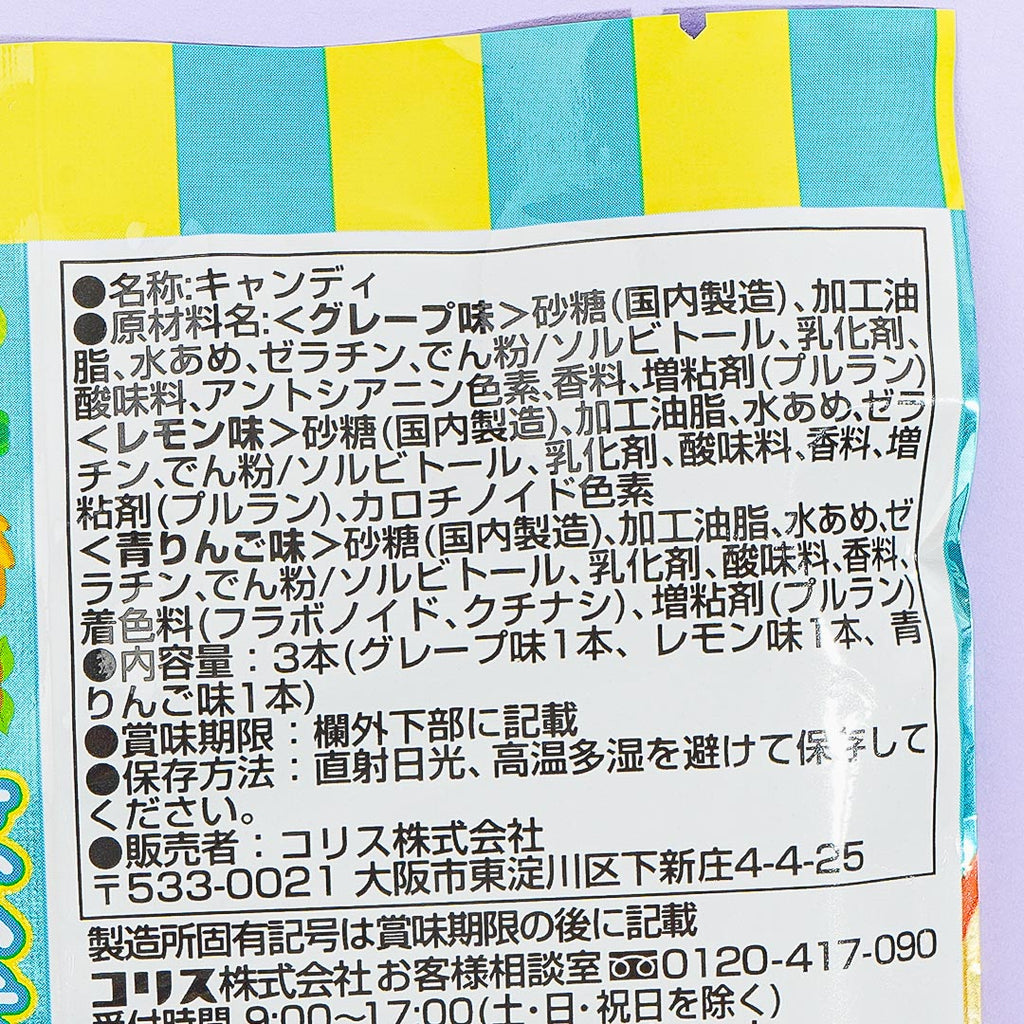 ●名称:キャンディ
●原材料名:<グレープ味>砂糖(国内製造)、加工油
脂、水あめ、ゼラチン、でん粉/ソルビトール、乳化剤、
酸味料、アントシアニン色素、香料、増粘剤(プルラン)
<レモン味>砂糖(国内製造)、加工油脂、水あめ、ゼラ
チン、でん粉/ソルビトール、乳化剤、酸味料、香料、増
粘剤(プルラン)、カロチノイド色素
<青りんご味>砂糖(国内製造)、加工油脂、水あめ、ゼ
ラチン、でん粉/ソルビトール、乳化剤、酸味料、香料、
着色料(フラボノイド、クチナシ)、増粘剤(プルラン)
●内容量:3本(グレープ味1本、レモン味1本、青
りんご味1本)
●賞味期限:欄外下部に記載
●保存方法:直射日光、高温多湿を避けて保存して
ください。
●販売者:コリス株式会社
〒533-0021 大阪市東淀川区下新庄4-4-25
製造所固有記号は賞味期限の後に記載
コリス株式会社お客様相談室 0120-417-090
受付時間 9:00~17:00(土・日・祝日を除く)